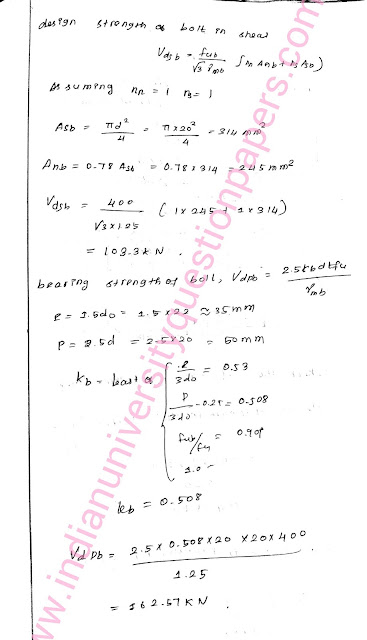 design strength of bolt in shear
Vdsb = fub / √3 γmb [nn Anb + ns Asb)
Assuming nn = 1 ns = 1
Asb = πd² / 4 = π×20² / 4 = 314 mm²
Anb = 0.78 Asb = 0.78×314 = 245 mm²
Vdsb = 400 / √3×1.25 (1×245 + 1×314)
= 103.3 kN.
bearing strength of bolt, Vdpb = 2.5 kb dt fu / γmb
e = 1.5do = 1.5×22 ≈ 35mm
P = 2.5d = 2.5×20 = 50mm
kb - least of { e / 3do = 0.53
P / 3do - 0.25 = 0.508
fub / fu = 0.90
1.0
kb = 0.508
VdPb = 2.5 × 0.508×20 ×20×400 / 1.25
= 162.57 KN.
www.indianuniversityquestionpapers.com